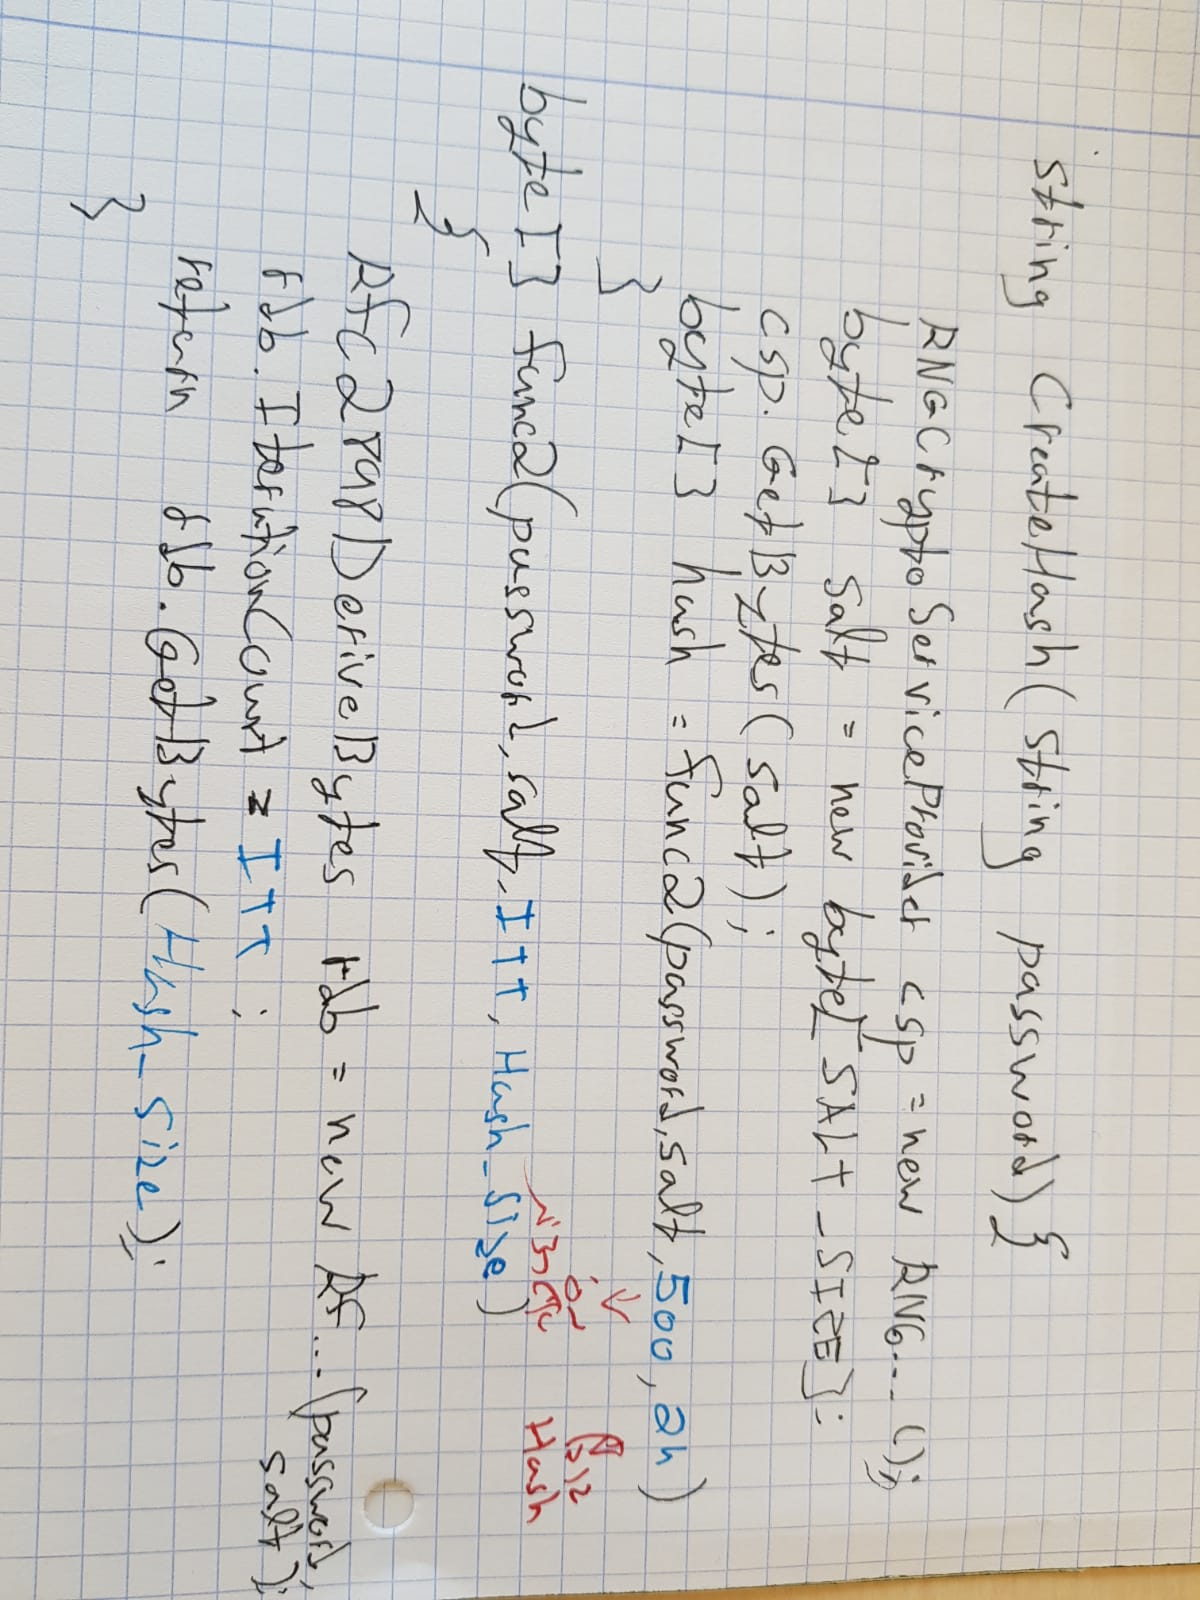 string CreateHash(string password){
RNGCryptoServiceProvider csp = new RNG...();
byte[] salt = new byte[SALT_SIZE];
csp.GetBytes(salt);
byte[] hash = func2(password,salt,500,24)
}
גודל
Hash
byte[] func2(password,salt,ITT,Hash_Size)
{
Rfc2898DeriveBytes rdb = new Rf...(password,
salt);
rdb.IterationCount = ITT;
return rdb.GetBytes(Hash_Size);
}